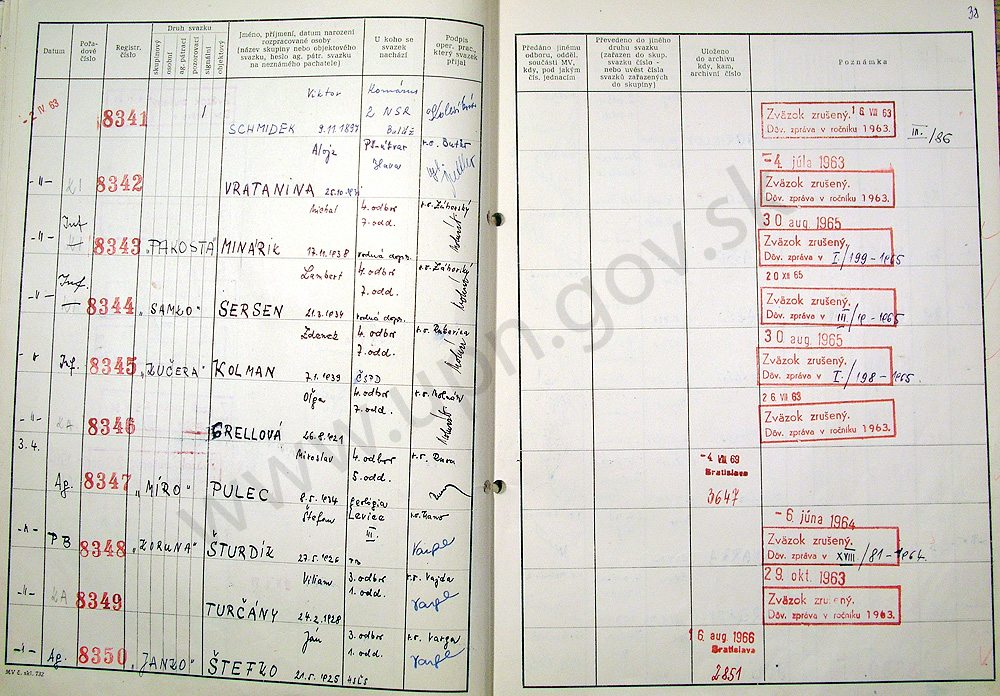 38
Datum
Pořadové číslo
Registr. číslo
Druh svazku
skupinový
osobní
ag. pátrací
pozorovací
signální
objektový
Jméno, příjmení, datum narození
rozpracované osoby
(název skupiny nebo objektového
svazku, heslo ag. pátr. svazku
na neznámého pachatele)
U koho se
svazek
nachází
Podpis
oper. prac.,
který svazek
přijal
Předáno jinému
odboru, odděl.
součásti MV,
kdy, pod jakým
čís. jednacím
Převedeno do jiného
druhu svazku
(zařazen do skup.
svazku číslo -
nebo uvést čísla
svazků zařazených
do skupiny)
Uloženo
do archivu
kdy, kam,
archivní číslo
Poznámka
-2 IV 63 8341 Viktor SCHMIDEK 9.11.1897 2 NSR
Zväzok zrušený. 16 VII 63
Dôv. zpráva v ročníku 1963. III./86
-"- 8342 Alojz VRATANINA
-4. júla 1963
Zväzok zrušený.
Dôv. zpráva v ročníku 1963.
-"- Inf. 8343 "PAKOSTA" Michal MINÁRIK 17.11.1938 4. odbor 7. odd. r.o. Záhorský
30 aug. 1965
Zväzok zrušený.
Dôv. zpráva v I./199-1965
-"- Inf. 8344 "SAMKO" Lambert SERSEN 21.3.1934 4. odbor 7. odd. r.o. Záhorský
20 XII 65
Zväzok zrušený.
Dôv. zpráva v III/ -1965
-"- Inf. 8345 "KUČERA" Zdeněk KOLMAN 7.1.1939 4. odbor 7. odd. ČSPD
30 aug. 1965
Zväzok zrušený.
Dôv. zpráva v I./198-1965.
-"- 8346 Oľga GRELLOVÁ 26.8.1921 4. odbor 7. odd.
26 VII 63
Zväzok zrušený.
Dôv. zpráva v ročníku 1963.
3.4. Ag. 8347 "MÍRO" Miroslav PULEC 8.5.1934 4. odbor 5. odd. geológia
-4 VII 69
Bratislava
3647
-"- PB 8348 "KORUNA" Štefan ŠTURDÍK 27.5.1926 Levice III.
-6. júna 1964
Zväzok zrušený.
Dôv. zpráva v XVIII/81-1964.
8349 Viliam TURČÁNY 24.2.1928 3. odbor 1. odd. r.o. Vajda
29. okt. 1963
Zväzok zrušený.
Dôv. zpráva v ročníku 1963.
-"- Ag. 8350 "JANKO" Ján ŠTEFKO 21.5.1925 3. odbor 1. odd. r.o. Varga
16 aug. 1966
Bratislava
2851
MV č. skl. 732
www.upn.gov.sk